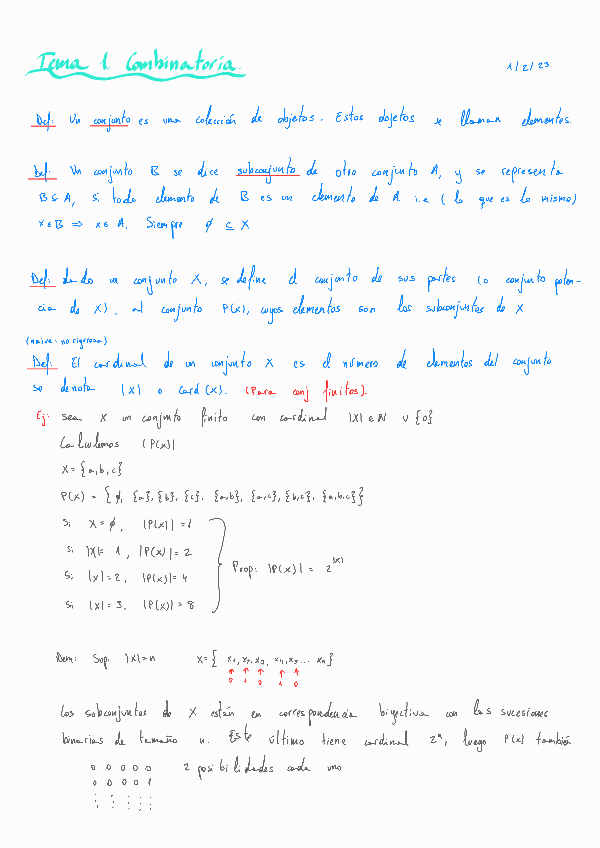 Tema 1 Combinatoria.
1/2/23
Def: Un conjunto es una colección de objetos. Estos objetos se llaman elementos.
Def: Un conjunto B se dice subconjunto de otro conjunto A, y se representa
B ⊆ A, si todo elemento de B es un elemento de A i.e ( lo que es lo mismo)
x ∈ B ⇒ x ∈ A. Siempre ∅ ⊆ X
Def: dado un conjunto X, se define el conjunto de sus partes (o conjunto poten-
cia de X), al conjunto P(X), cuyos elementos son los subconjuntos de X
(naive: no rigurosa)
Def: El cardinal de un conjunto X es el número de elementos del conjunto
se denota |X| o Card (X). (Para conj finitos).
Ej: sea X un conjunto finito con cardinal |X| ∈ N ∪ {0}
Calculemos |P(X)|
X = {a, b, c}
P(X) = {∅, {a}, {b}, {c}, {a,b}, {a,c}, {b,c}, {a,b,c}}
Si X = ∅, |P(X)| = 1
Si |X| = 1, |P(X)| = 2
Si |X| = 2, |P(X)| = 4
Si |X| = 3, |P(X)| = 8
Prop: |P(X)| = 2^|X|
Dem: Sup. |X| = n X = { x₁, x₂, x₃, x₄, x₅ ... xₙ}
Los subconjuntos de X están en correspondencia biyectiva con las sucesiones
binarias de tamaño n. Este último tiene cardinal 2ⁿ, luego P(X) también
0 0 0 0 0 2 posibilidades cada uno
0 0 0 0 1